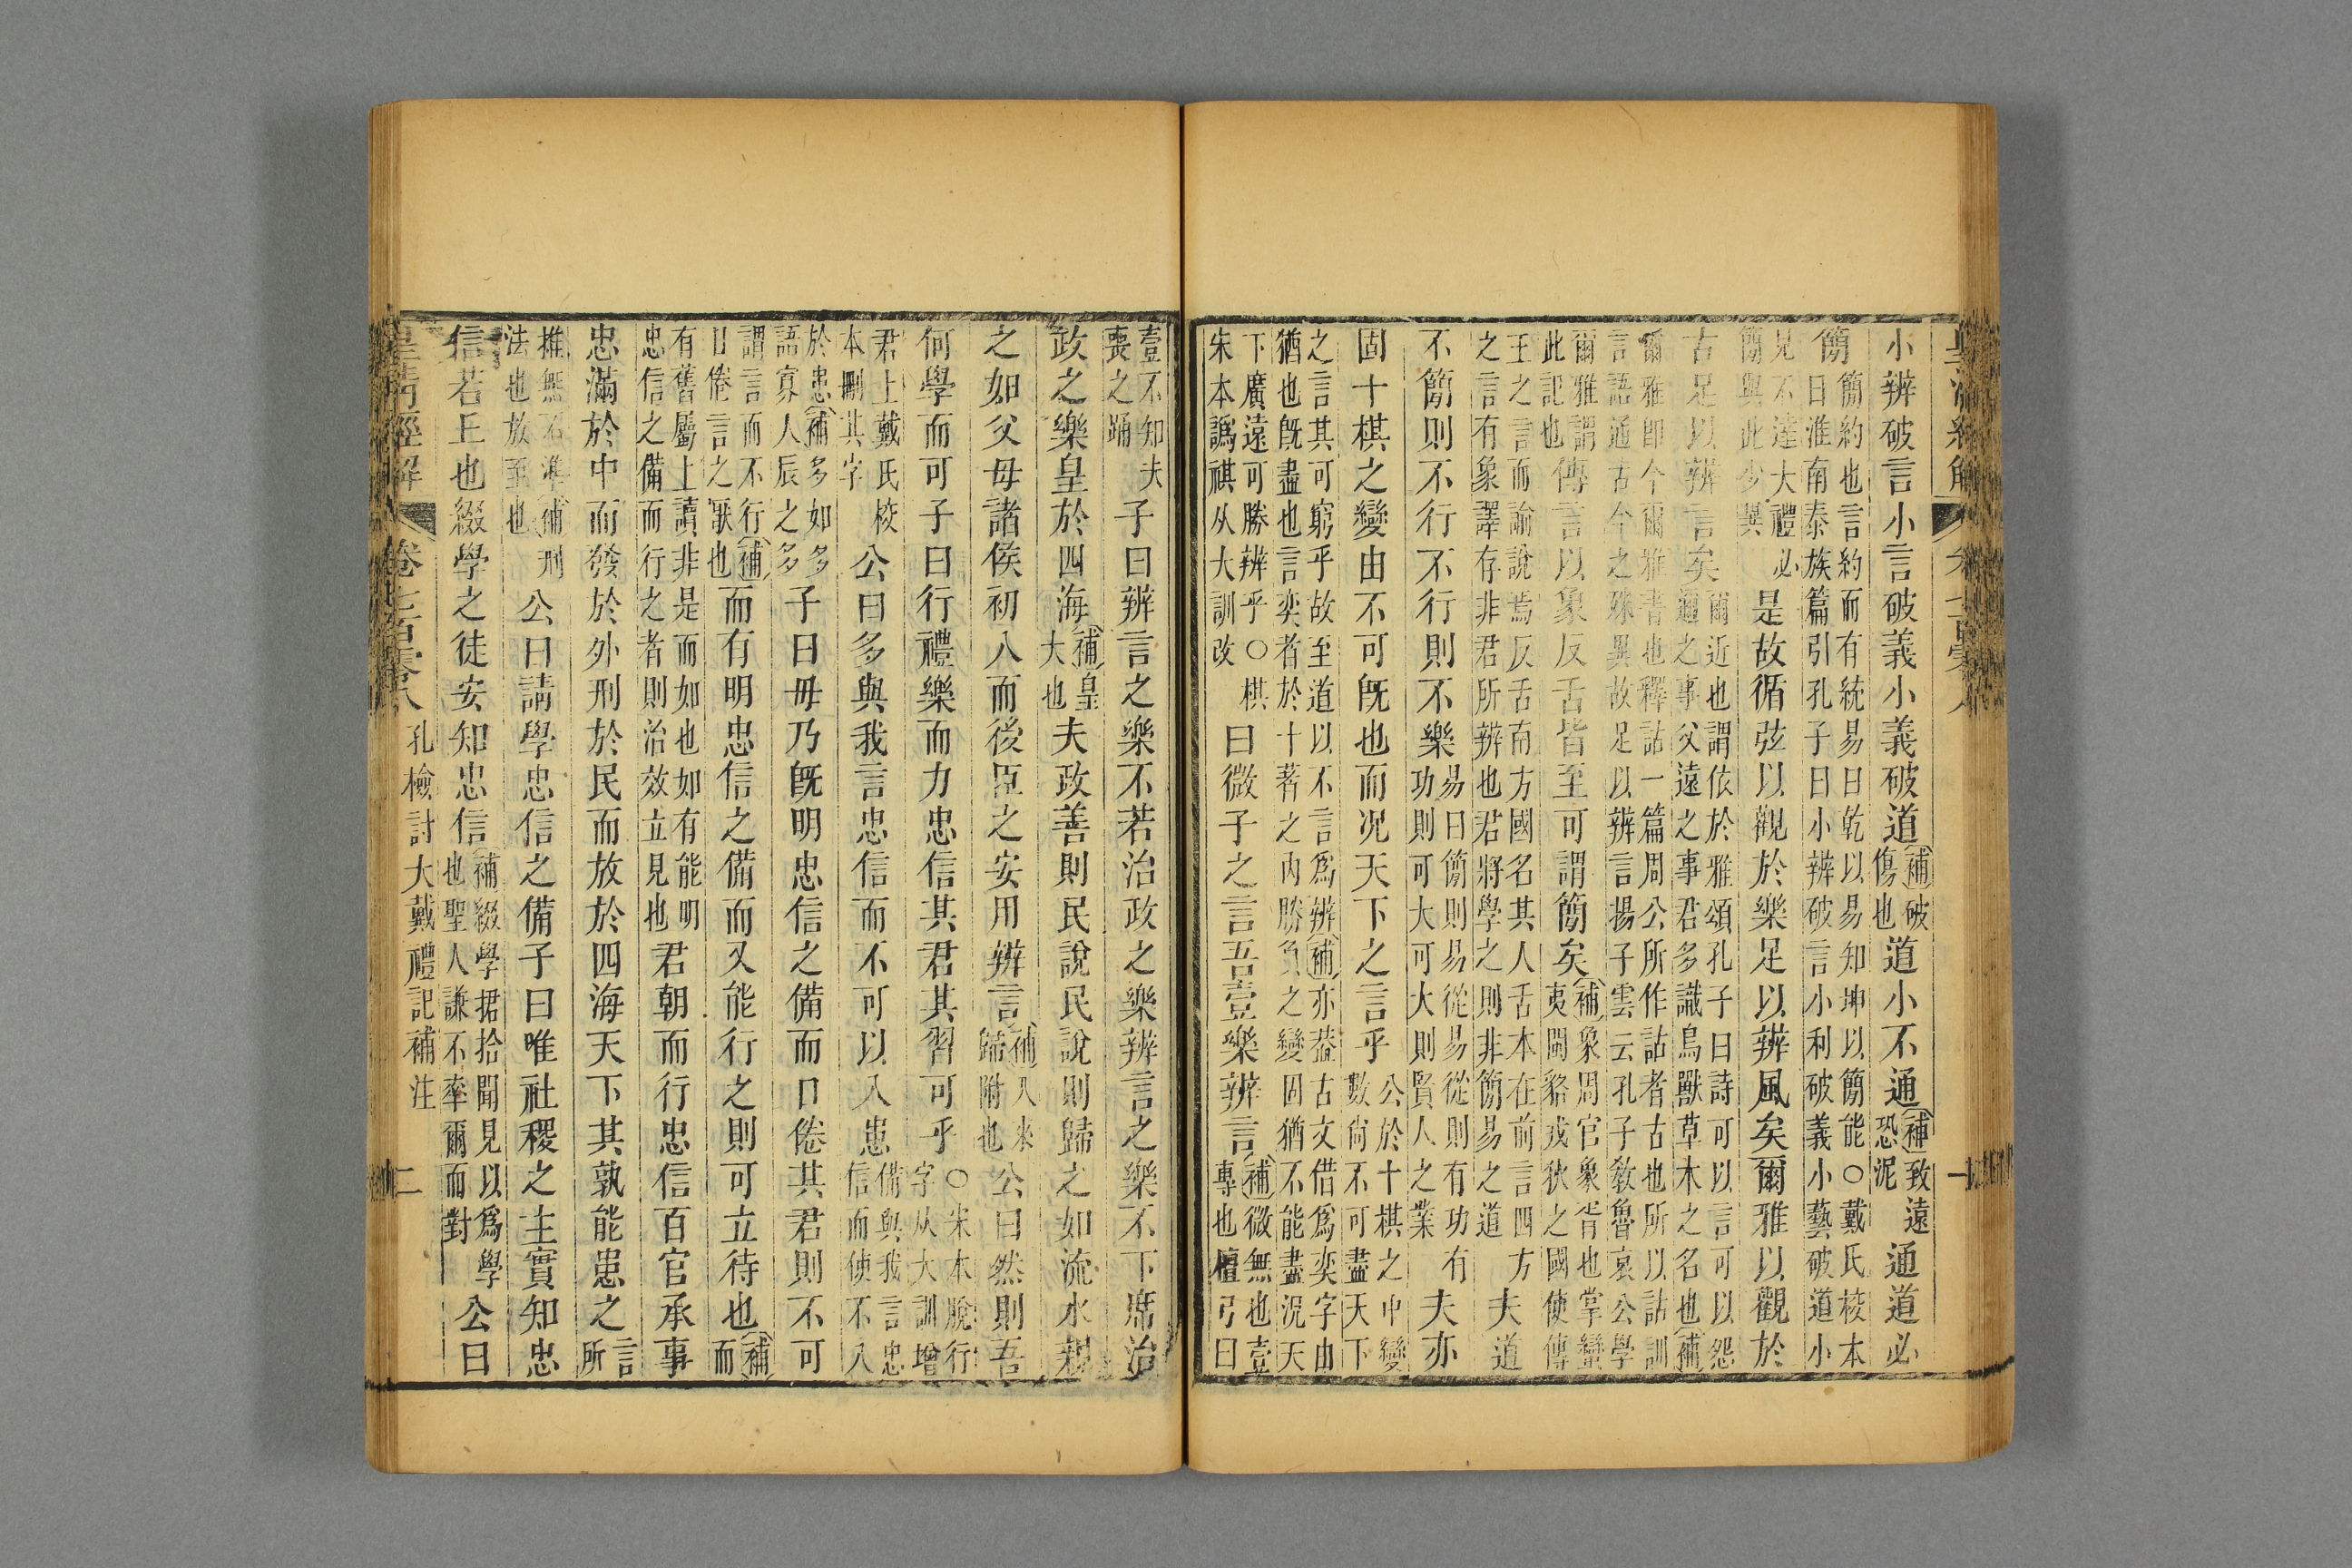 皇清經解 卷七百零八 一
小辨破言小言破義小義破道補破傷也道小不通補致遠恐泥通道必
簡簡約也言約而有統易曰乾以易知坤以簡能○戴氏校本曰淮南泰族篇引孔子曰小辨破言小利破義小藝破道小
見不達大禮必簡與此少異是故循弦以觀於樂足以辨風矣爾雅以觀於
古足以辨言矣爾近也謂依於雅頌孔子曰詩可以言可以怨通之事父遠之事君多識鳥獸草木之名也補
爾雅即今爾雅書也釋詁一篇周公所作詁者古也所以詁訓言語通古今之殊異故足以辨言揚子雲云孔子敎魯哀公學
爾雅謂此記也傳言以象反舌皆至可謂簡矣補象周官象胥也掌蠻夷閩貉戎狄之國使傳
王之言而諭說焉反舌南方國名其人舌本在前言四方之言有象譯存非君所辨也君將學之則非簡易之道夫道
不簡則不行不行則不樂易曰簡則易從易從則有功有功則可大可大則賢人之業夫亦
固十棋之變由不可旣也而況天下之言乎公於十棋之中變數尙不可盡天下
之言其可窮乎故至道以不言爲辨補亦蓋古文借爲奕字由猶也旣盡也言奕者於十著之內勝負之變固猶不能盡況天
下廣遠可勝辨乎○棋朱本譌祺从大訓改曰微子之言吾壹樂辨言補微無也壹專也檀弓曰
壹不知夫喪之踊子曰辨言之樂不若治政之樂辨言之樂不下席治
政之樂皇於四海補皇大也夫政善則民說民說則歸之如流水親
之如父母諸侯初入而後臣之安用辨言補入來歸附也公曰然則吾
何學而可子曰行禮樂而力忠信其君其習可乎○宋本脫行字从大訓增
君上戴氏校本刪其字公曰多與我言忠信而不可以入患備與我言忠信而使不入
於患補多如多語寡人辰之多子曰毋乃旣明忠信之備而口倦其君則不可
謂言而不行補口倦言之厭也而有明忠信之備而又能行之則可立待也補而
有舊屬上讀非是而如也如有能明忠信之備而行之者則治效立見也君朝而行忠信百官承事
忠滿於中而發於外刑於民而放於四海天下其孰能患之言所
推無不準補刑法也放至也公曰請學忠信之備子曰唯社稷之主實知忠
信若丘也綴學之徒安知忠信補綴學捃拾聞見以爲學也聖人謙不率爾而對公曰
皇清經解 卷七百零八 孔檢討大戴禮記補注 二